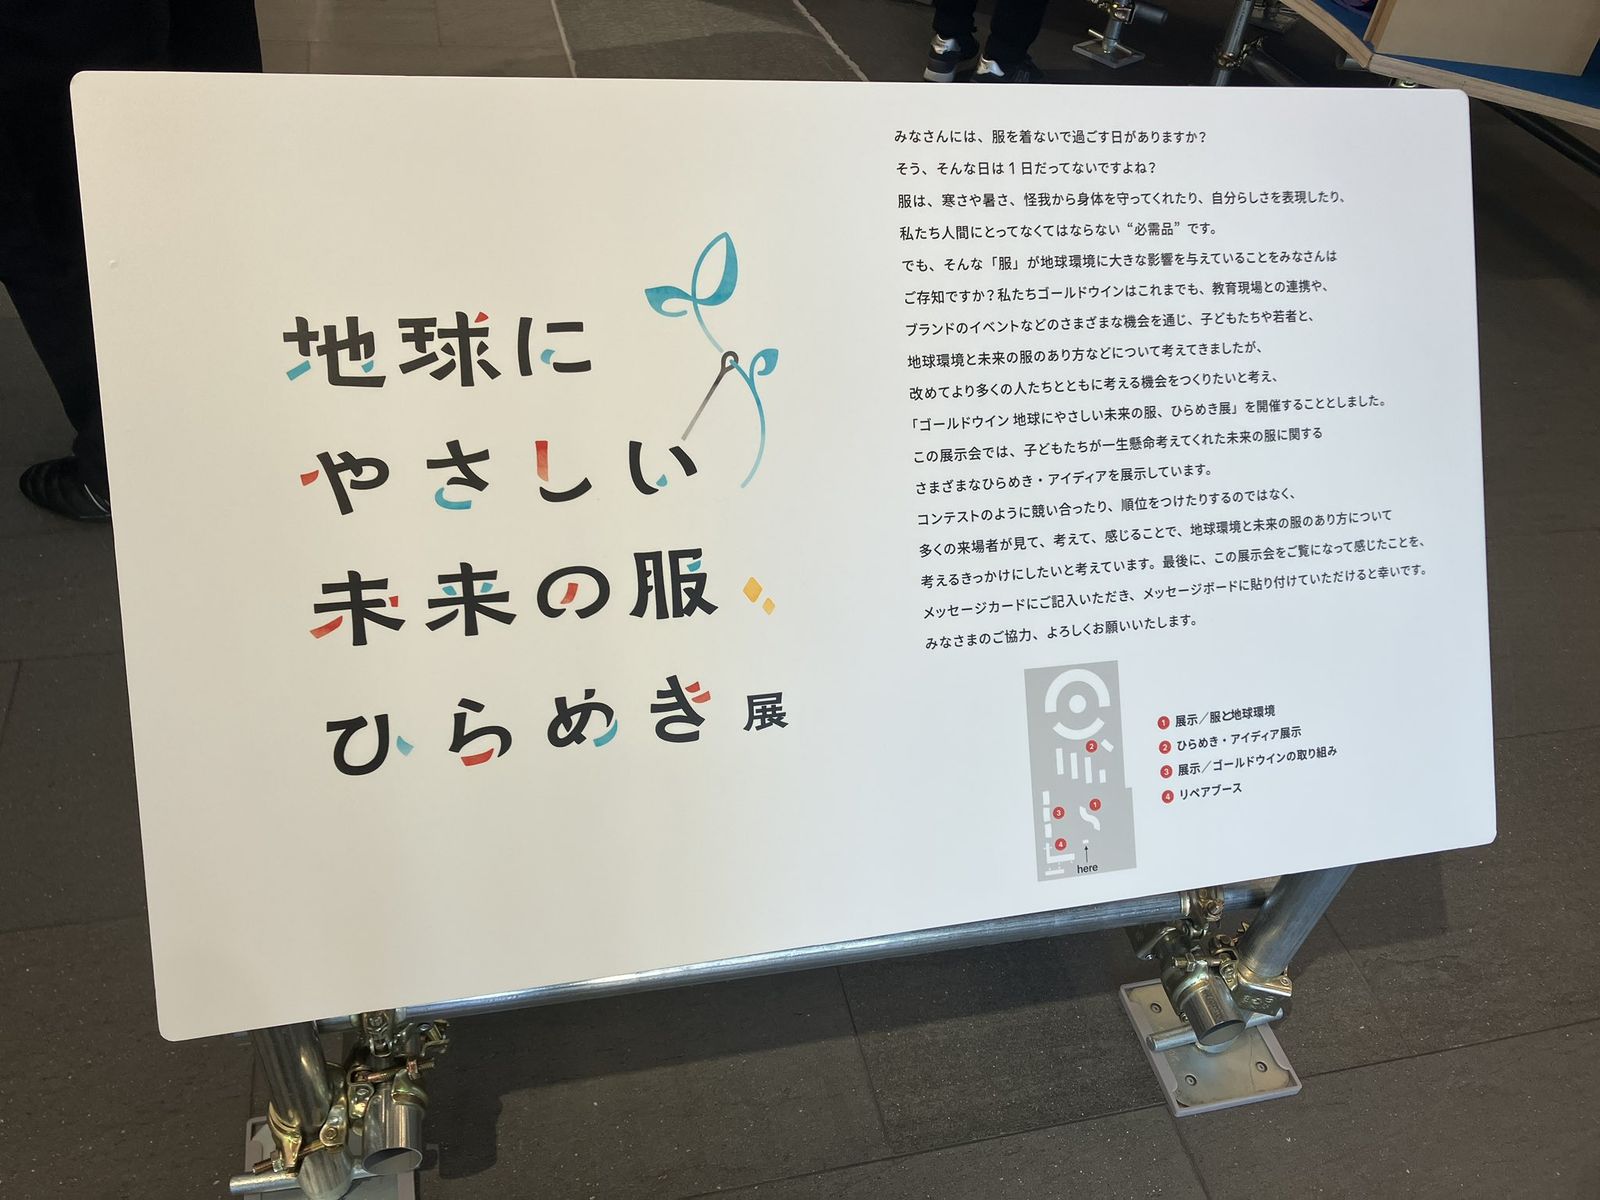 地球に
やさしい
未来の服
ひらめき 展
みなさんには、服を着ないで過ごす日がありますか？
そう、そんな日は1日だってないですよね？
服は、寒さや暑さ、怪我から身体を守ってくれたり、自分らしさを表現したり、
私たち人間にとってなくてはならない“必需品”です。
でも、そんな「服」が地球環境に大きな影響を与えていることをみなさんは
ご存知ですか？私たちゴールドウインはこれまでも、教育現場との連携や、
ブランドのイベントなどのさまざまな機会を通じ、子どもたちや若者と、
地球環境と未来の服のあり方などについて考えてきましたが、
改めてより多くの人たちとともに考える機会をつくりたいと考え、
「ゴールドウイン 地球にやさしい未来の服、ひらめき展」を開催することとしました。
この展示会では、子どもたちが一生懸命考えてくれた未来の服に関する
さまざまなひらめき・アイディアを展示しています。
コンテストのように競い合ったり、順位をつけたりするのではなく、
多くの来場者が見て、考えて、感じることで、地球環境と未来の服のあり方について
考えるきっかけにしたいと考えています。最後に、この展示会をご覧になって感じたことを、
メッセージカードにご記入いただき、メッセージボードに貼り付けていただけると幸いです。
みなさまのご協力、よろしくお願いいたします。
1 展示／服と地球環境
2 ひらめき・アイディア展示
3 展示／ゴールドウインの取り組み
4 リペアブース
2
1
3
4
here